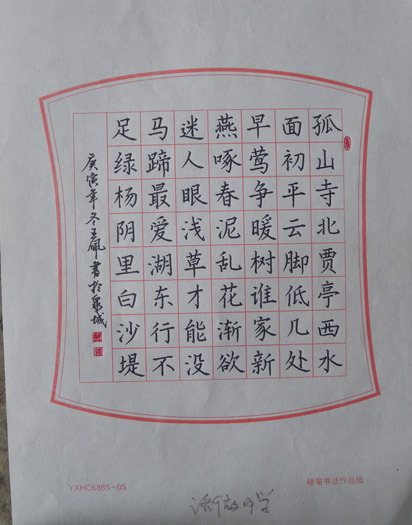 孤山寺北贾亭西水
面初平云脚低几处
早莺争暖树谁家新
燕啄春泥乱花渐欲
迷人眼浅草才能没
马蹄最爱湖东行不
足绿杨阴里白沙堤
庚寅年冬王佩書於泉城
YXHC6865-05
硬笔书法作品纸
中学